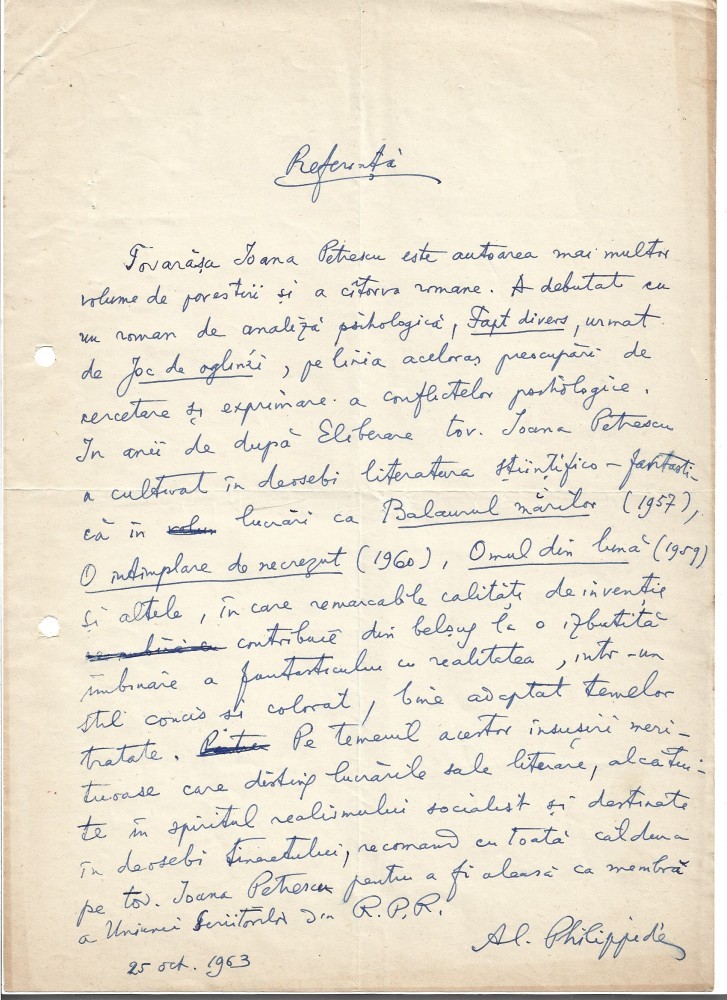 Referință
Tovarășa Ioana Petrescu este autoarea mai multor
volume de povestiri și a cîtorva romane. A debutat cu
un roman de analiză psihologică, Fapt divers, urmat
de Joc de oglinzi, pe linia acelorași preocupări de
cercetare și exprimare a conflictelor psihologice.
In anii de după Eliberare tov. Ioana Petrescu
a cultivat în deosebi literatura științifico-fantasti-
că în lucrări ca Balaurul mărilor (1957),
O intîmplare de necrezut (1960), Omul din lună (1959)
și altele, în care remarcabile calități de invenție
contribuie din belșug la o izbutită
îmbinare a fantasticului cu realitatea, intr-un
stil concis și colorat, bine adaptat temelor
tratate. Pe temeiul acestor însușiri meri-
tuoase care disting lucrările sale literare, alcătui-
te în spiritul realismului socialist și destinate
în deosebi tineretului, recomand cu toată căldura
pe tov. Ioana Petrescu pentru a fi aleasă ca membră
a Uniunii Scriitorilor din R.P.R.
Al. Philippide
25 oct. 1963